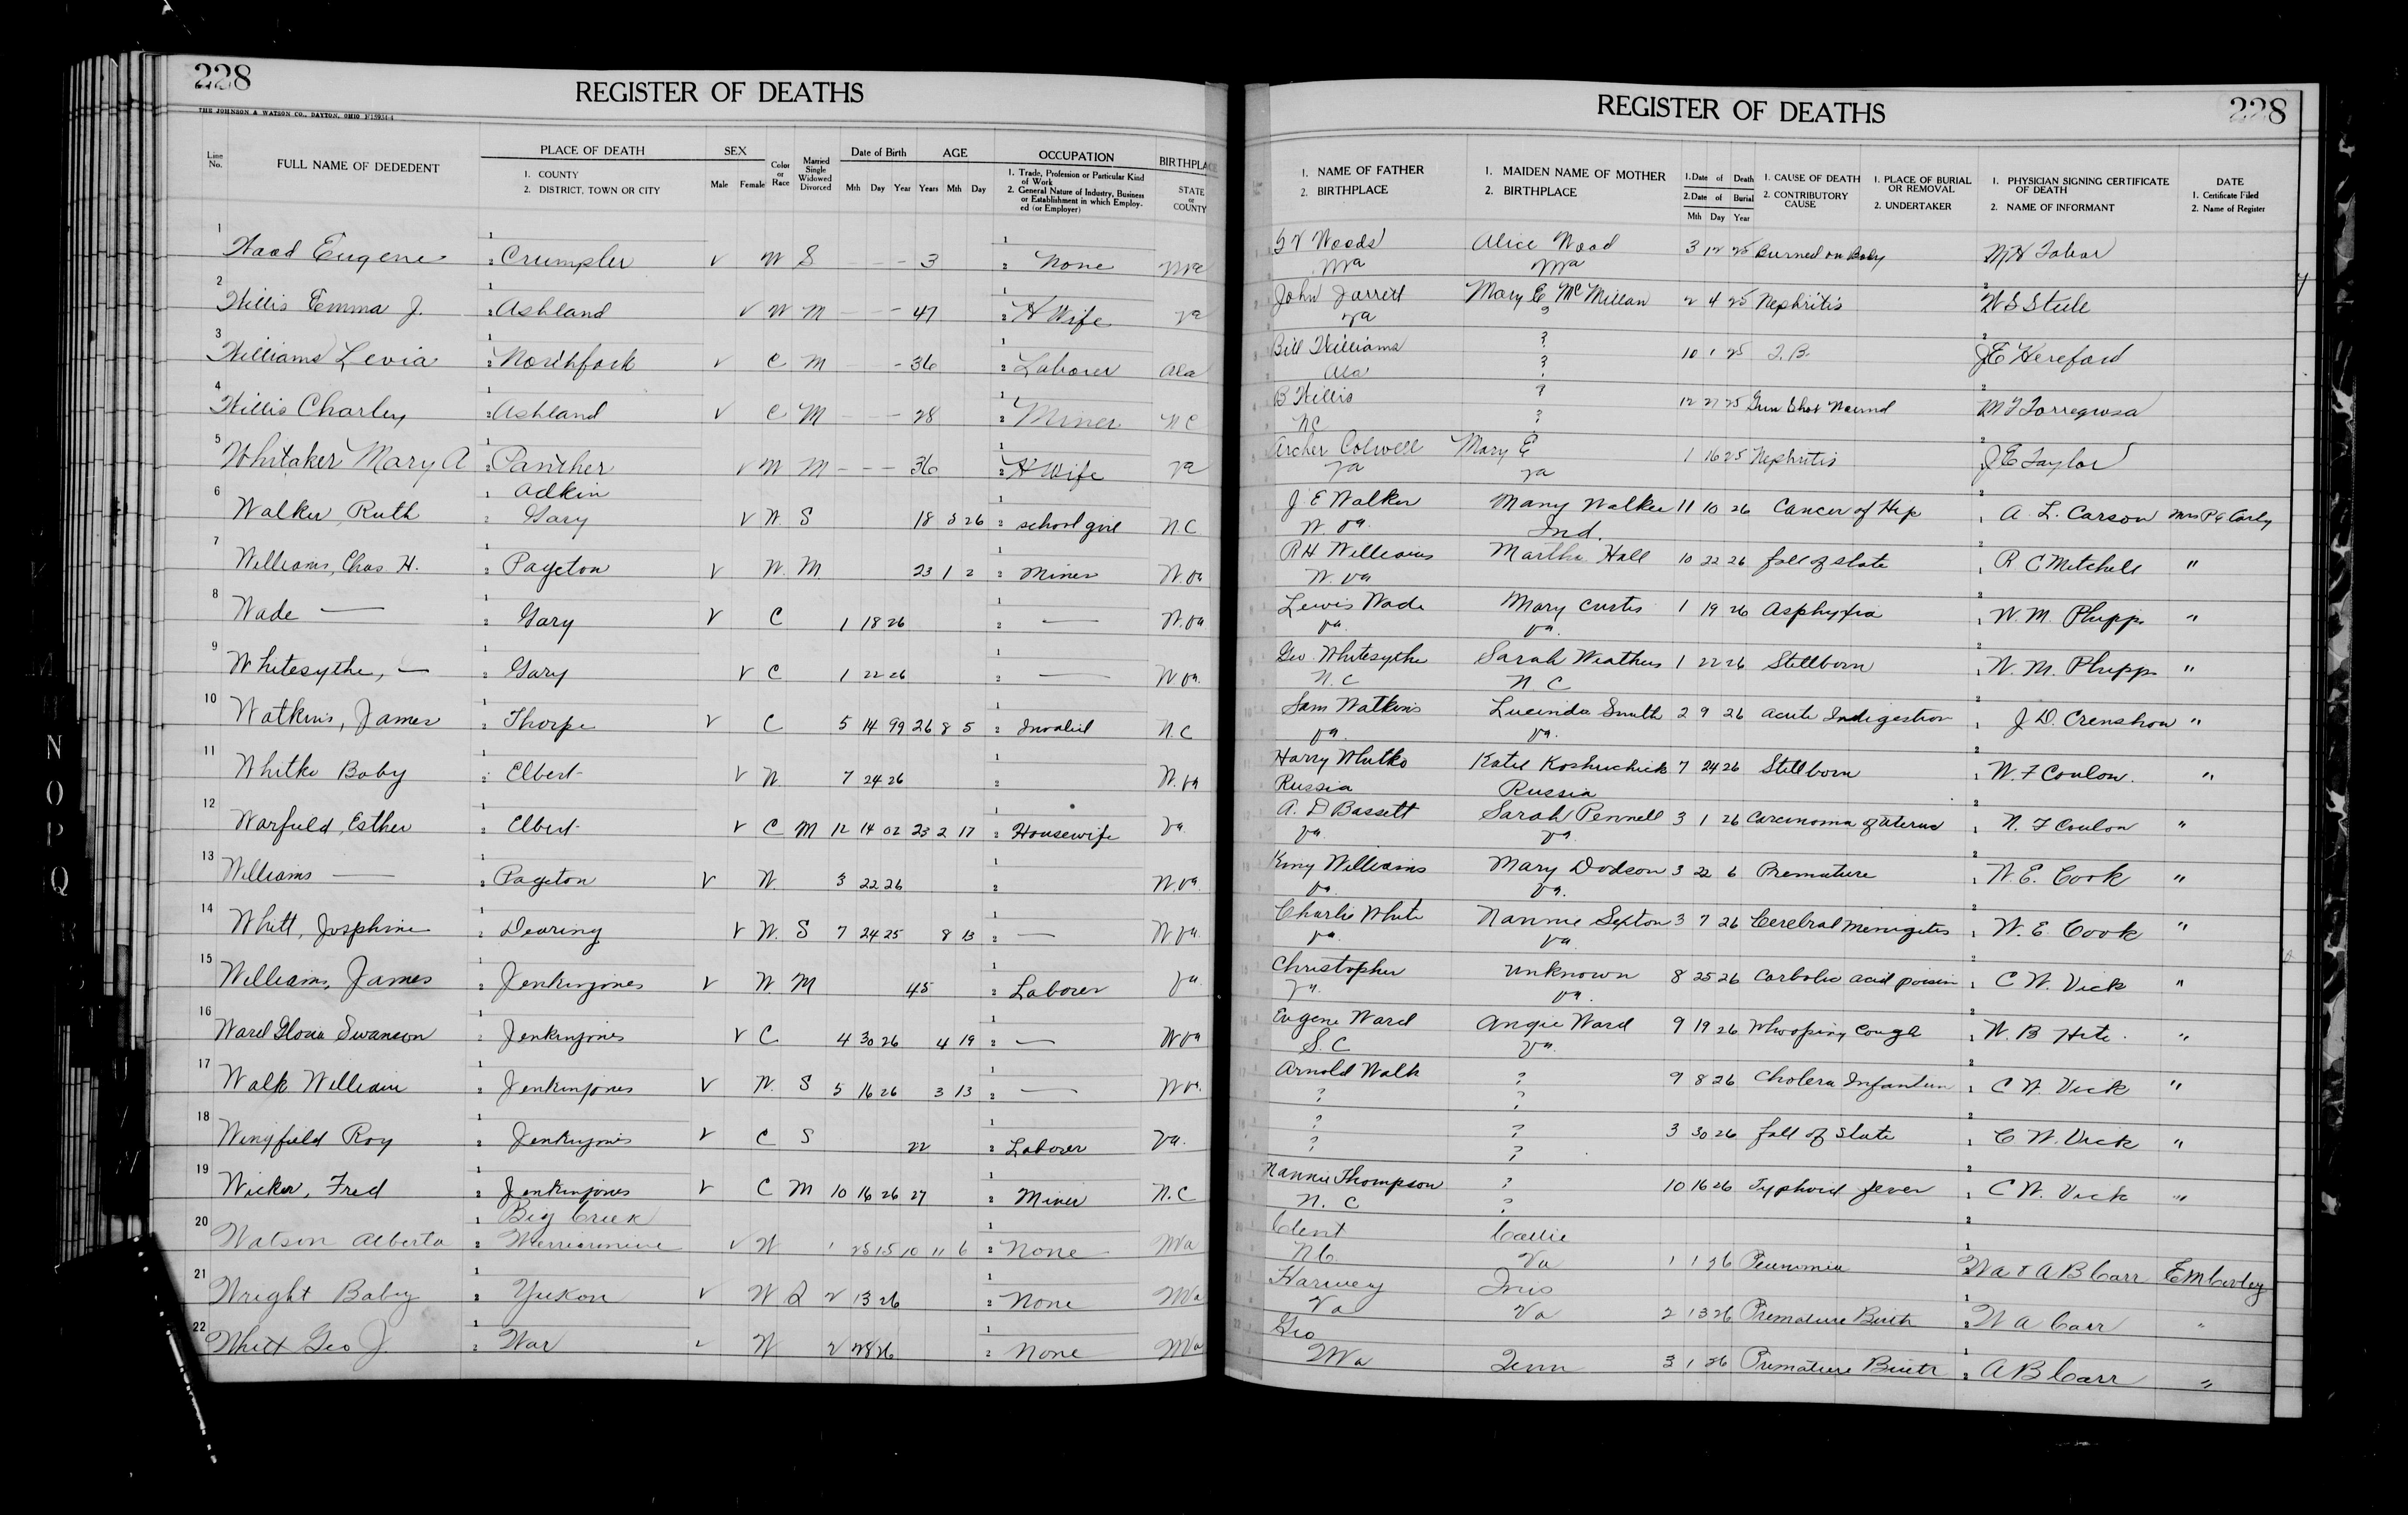 228
REGISTER OF DEATHS
THE JOHNSON & WATSON CO., DAYTON, OHIO
Line No. FULL NAME OF DEDEDENT PLACE OF DEATH 1. COUNTY 2. DISTRICT, TOWN OR CITY SEX Male Female Color or Race Married Single Widowed Divorced Date of Birth Mth Day Year AGE Years Mth Day OCCUPATION 1. Trade, Profession or Particular Kind of Work 2. General Nature of Industry, Business or Establishment in which Employed (or Employer) BIRTHPLACE STATE or COUNTY
1 Wood Eugene Crumpler v W S - - - 3 None Wva
2 Willis Emma J. Ashland v W M - - - 47 H Wife Va
3 Williams Levia Northfork v C M - 36 Laborer Ala
4 Willis Charley Ashland v C M - - - 28 Miner NC
5 Whitaker Mary A Panther v W M - - - 36 H Wife Va
6 Walker, Ruth Adkin Gary v W. S 18 3 26 school girl N.C
7 Williams, Chas H. Pageton v W. M 23 1 2 Miner W.va
8 Wade — Gary v C 1 18 26 — W.va.
9 Whitesythe, — Gary v C 1 22 26 — W va.
10 Watkins, James Thorpe v C 5 14 99 26 8 5 Invalid N.C
11 Whitko Baby Elbert v W 7 24 26 W.va
12 Warfield, Esther Elbert v C M 12 14 02 23 2 17 Housewife Va.
13 Williams — Pageton v W 3 22 26 W.va.
14 Whitt, Josphine Dearing v W. S 7 24 25 8 13 — W va.
15 Williams, James Jenkinjones v W M 45 Laborer Va.
16 Ward Gloria Swanson Jenkinjones v C 4 30 26 4 19 — W va
17 Walk William Jenkinjones v W. S 5 16 26 3 13 — W va.
18 Wingfield Roy Jenkinjones v C S 22 Laborer Va.
19 Wicker, Fred Jenkinjones v C M 10 16 26 27 Miner N.C
20 Watson Alberta Big Creek Warriormine v W 1 25 15 10 11 6 None Wva
21 Wright Baby Yukon v W S 2 13 26 None Wva
22 Whitt Geo J. War v W 2 28 26 None Wva
REGISTER OF DEATHS
228
1. NAME OF FATHER 2. BIRTHPLACE 1. MAIDEN NAME OF MOTHER 2. BIRTHPLACE 1. Date of Death 2. Date of Burial Mth Day Year 1. CAUSE OF DEATH 2. CONTRIBUTORY CAUSE 1. PLACE OF BURIAL OR REMOVAL 2. UNDERTAKER 1. PHYSICIAN SIGNING CERTIFICATE OF DEATH 2. NAME OF INFORMANT DATE 1. Certificate Filed 2. Name of Register
Woods Alice Wood 3 12 25 Burned on Body
Wva Wva
John Jarrell Mary E McMillan 2 4 25 Nephritis W S Steele
Va ?
Bill Williams ? 10 1 25 T.B. J E Hereford
Ala ?
B Willis ? 12 27 25 Gun Shot Wound
NC ?
Archer Colwell Mary E 1 16 25 Nephritis J E Taylor
Va Va
J E Walker Mary Walker 11 10 26 Cancer of Hip A. L. Carson
W. va. Ind.
R H Williams Martha Hall 10 22 26 fall of slate R C Mitchell "
W. va
Lewis Wade Mary Curtis 1 19 26 Asphyxia W. M. Phipps "
va. va.
Geo. Whitesythe Sarah Weathers 1 22 26 Stillborn W. M. Phipps "
N. C N C
Sam Watkins Lucinda Smith 2 9 26 acute Indigestion J. D. Crenshaw "
va. va.
Harry Whitko Katie 7 24 26 Stillborn W. F Coulon. "
Russia Russia
A. D Bassett Sarah Pennell 3 1 26 Carcinoma of Uterus W. F Coulon "
va. va.
King Williams Mary Dodson 3 22 6 Premature W. E. Cook "
va. Va.
Charlie White Nannie Sexton 3 7 26 Cerebral Menigites W. E. Cook "
va. va
Christopher unknown 8 25 26 Carbolic acid poison C W. Vick "
Va. va.
Eugene Ward Angie Ward 9 19 26 Whooping Cough W. B Hite. "
S. C Va.
Arnold Walk ? 9 8 26 Cholera Infantum C W. Vick "
? ?
? ? 3 30 26 fall of Slate C W. Vick "
? ?
Nannie Thompson ? 10 16 26 Typhoid fever C W. Vick "
N. C ?
Clent Callie
NC Va 1 1 26 Peunmia Wa & A B Carr
Harvey Inis
Va Va 2 13 26 Premature Birth W A Carr "
Geo
Wva Tenn 3 1 26 Premature Birth A B Carr "
M N O P Q